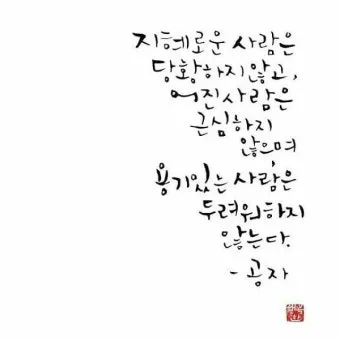 지혜로운 사람은
당황하지 않고,
어진 사람은
근심하지
않으며,
용기있는 사람은
두려워하지
않는다.
- 공자